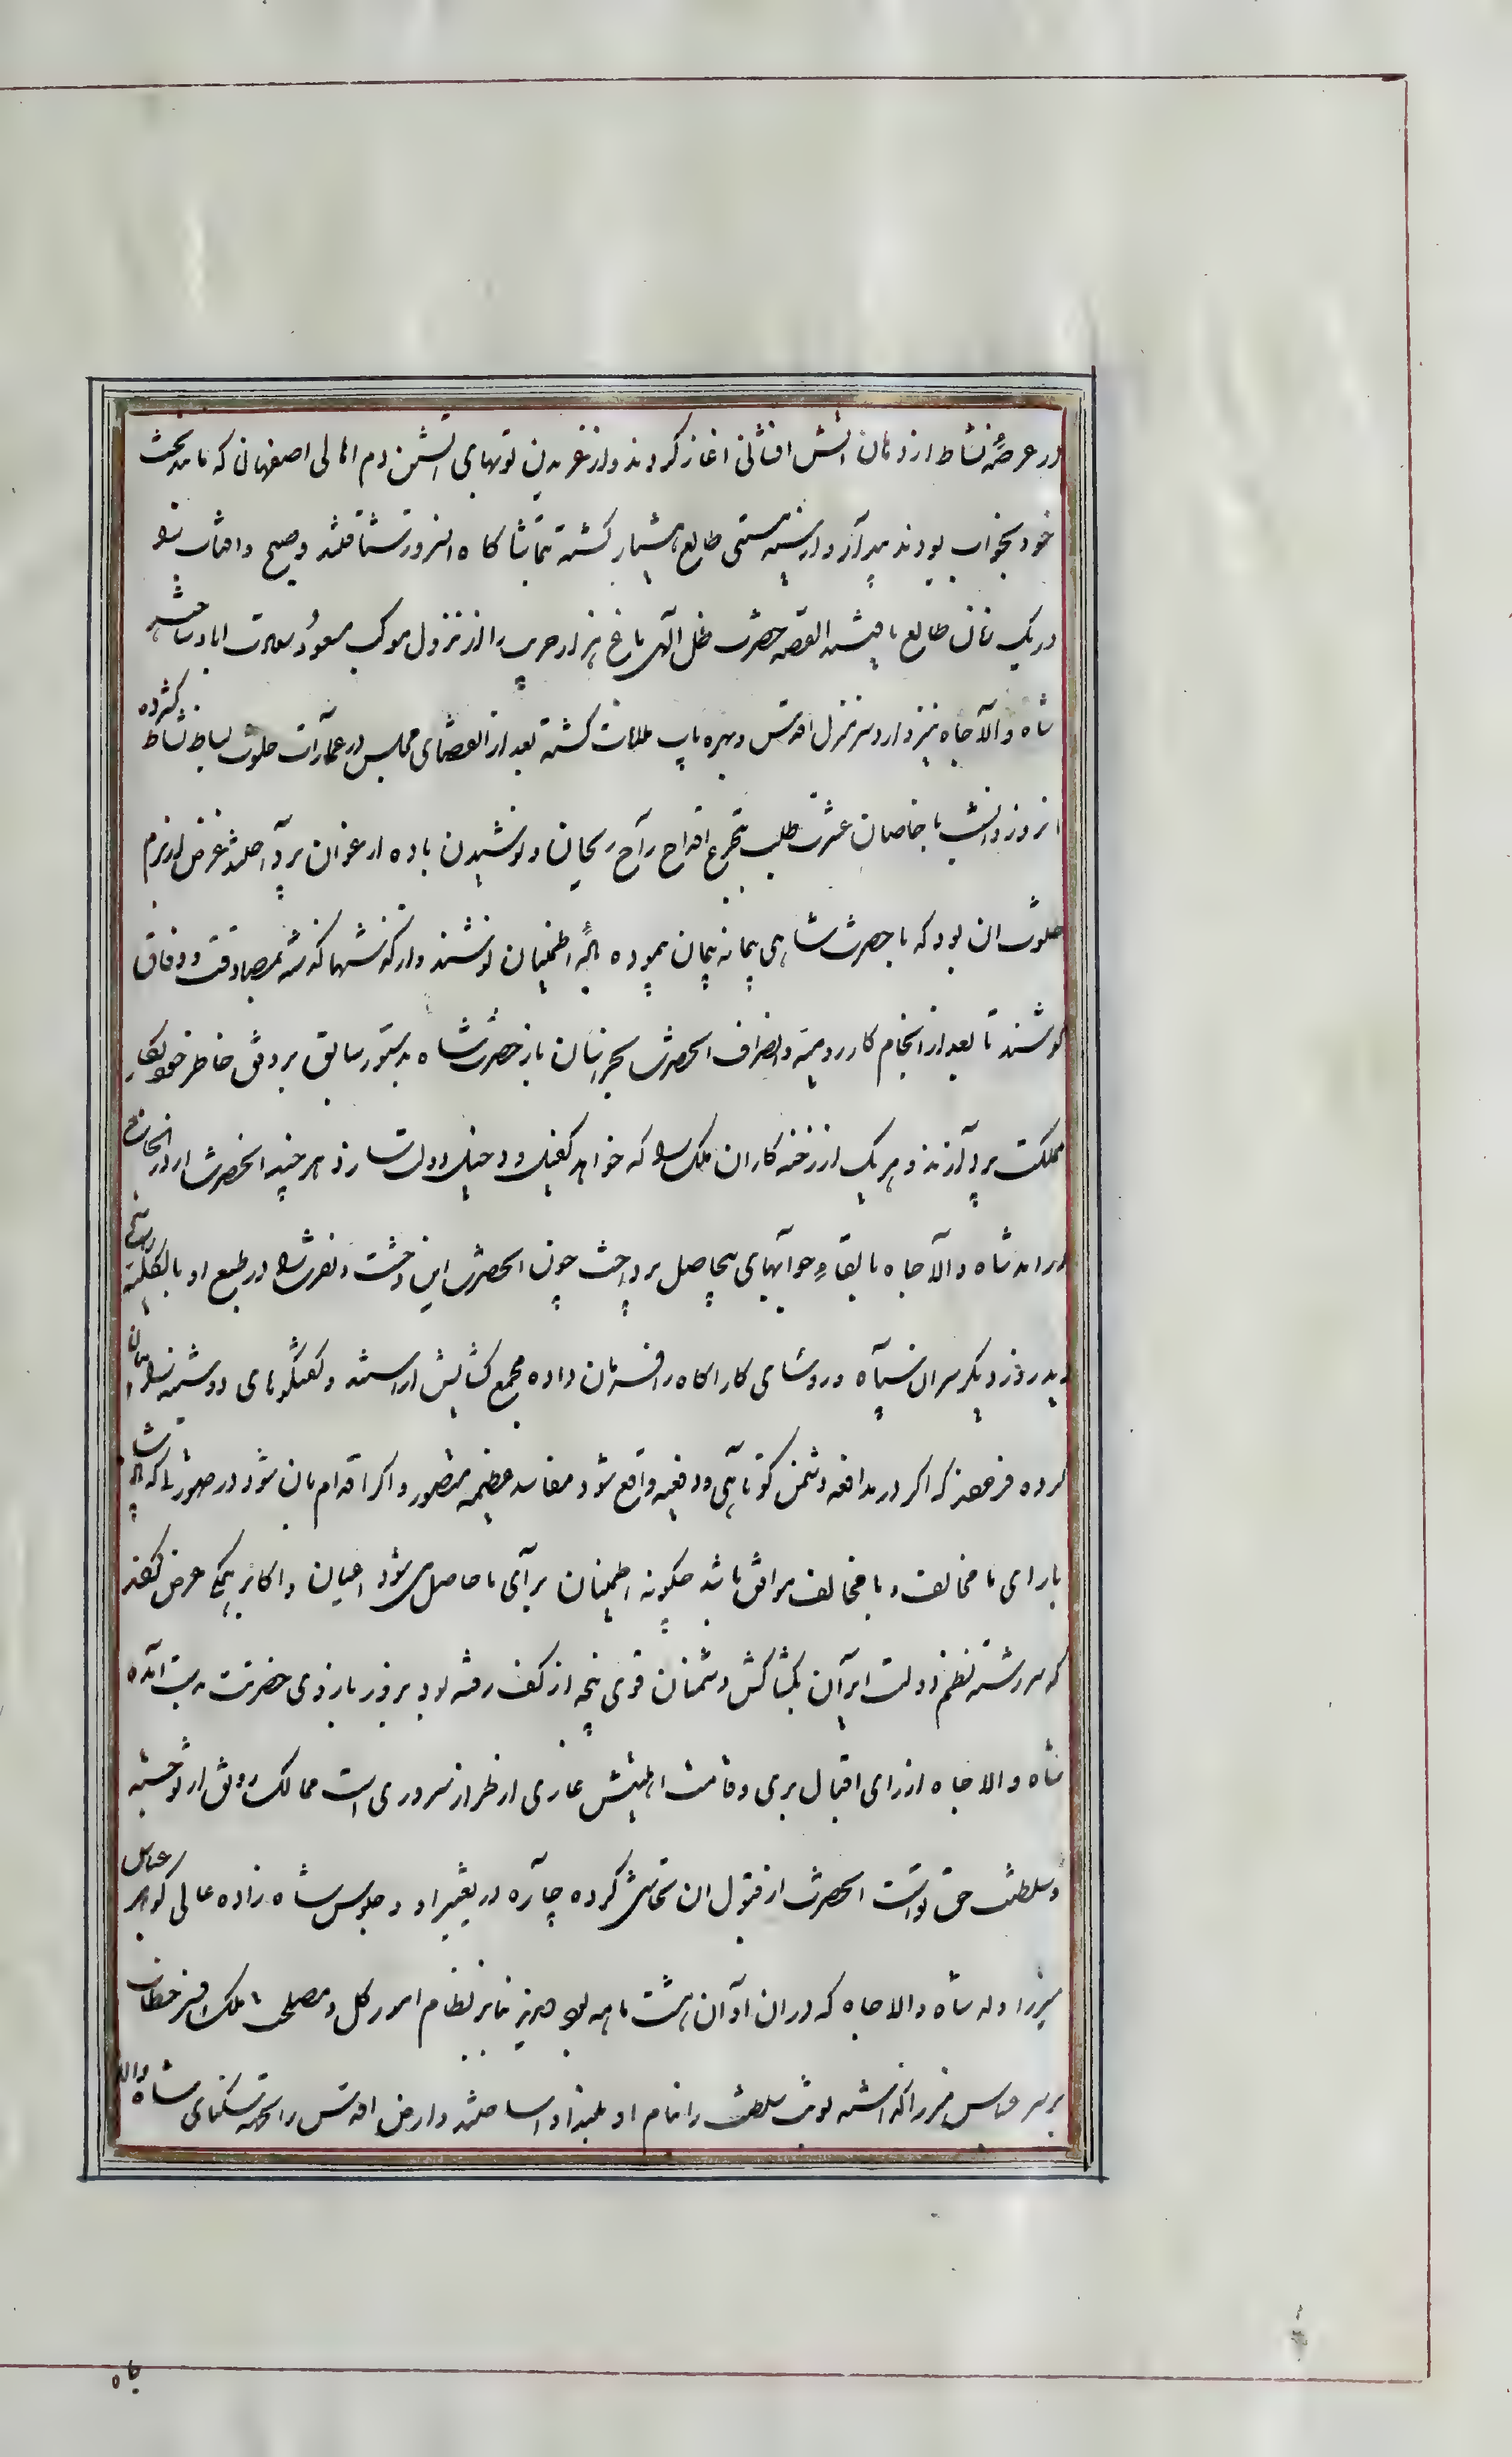 در عرصهٔ نشاط از دهان آتش افشانی اغاز کردند و از غریدن توپهای آتشین دم اهالی اصفهان که مانند بخت
خود بخواب بودند بیدار و از نشئه مستی طالع هشیار کشته بتماشا کاه انروز شتافتند و صبح و افتاب را
در یک زمان طالع یافتند القصه حضرت ظل آلهی باغ هزار جریب را از نزول موکب مسعود سعادت اباد ساخته
شاه والا جاه نیز وارد سر منزل اقدس و بهره یاب ملاقات کشته بعد از انقضای مجلس در عمارات خلوت بساط نشاط کسترده
انروز و انشب با خاصان عشرت طلب بتجرع اقداح راح ریحان و نوشیدن باده ارغوان پرداختند غرض از بزم
خلوت ان بود که با حضرت شاهی پیمانه پیمان پیموده باده اطمینان نوشند و از کذشتها کذشته بمصادقت و وفاق
کوشند تا بعد از انجام کار رومیه و انصراف انحضرت بخراسان باز حضرت شاه بدستور سابق بر وفق خاطر خواه بکار
مملکت پردازند و هر یک از رخنه کاران ملک را که خواهد کفیل و دخیل دولت سازد هر چند انحضرت از در نصح
در امد شاه والا جاه بالقاء جوابهای بیحاصل پرداخت چون انحضرت این وحشت و نفرت را در طبع او بالکلیه
دید روز دیکر سران سپاه و روسای کار اکاه را فرمان داده مجمع کنکایش اراستند و کفتکوهای دوشینه را
کرده فرمودند که اکر در مدافعه دشمن کوتاهی و دقیقه واقع شود مفاسد عظیمه متصور و اکر اقدام بان شود در صورتی که
با رای ما مخالف و با مخالف موافق باشد چکونه اطمینان برای ما حاصل می شود اعیان و اکابر عرض کردند
که سررشته نظم دولت ایران بکشاکش دشمنان قوی پنجه از کف رفته بود بزور بازوی حضرتت بدست آمده
شاه والا جاه از رای اقبال بری و قامت اهلیتش عاری از طراز سروری است ممالک رونق از تو جسته
و سلطنت حق توست انحضرت از قبول ان تحاشی کرده چاره در تغییر او و جلوس شاه زاده عالی کوهر عباس
میرزا ولد شاه والا جاه که در ان اوان هشت ماهه بود دیدند بنابر نظام امور کل و مصلحت ملک افسر خطاب
بر سر عباس میرزا کذاشته نوبت سلطنت را بنام او بلند اوا ساختند و ارض اقدس را بجهة سکنای شاه والا
جاه